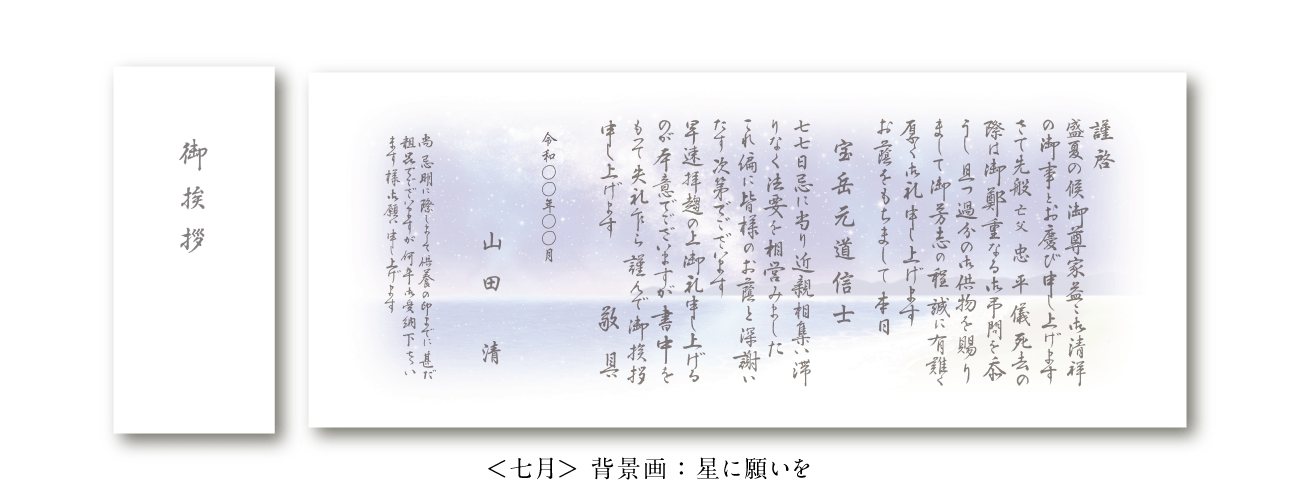 御挨拶
謹啓
盛夏の候御尊家益々御清祥
の御事とお慶び申し上げます
さて先般 亡父 忠平 儀 死去の
際は御鄭重なる御弔問を忝
うし 且つ過分の御供物を賜り
まして御芳志の程 誠に有難く
厚く御礼申し上げます
お蔭をもちまして 本日
宝岳元道信士
七七日忌に当り近親相集い滞
りなく法要を相営みました
これ偏に皆様のお蔭と深謝い
たす次第でございます
早速拝趨の上御礼申し上げる
のが本意でございますが書中を
もって失礼乍ら謹んで御挨拶
申し上げます
敬具
令和〇〇年〇〇月
山田 清
尚 忌明に際しまして供養の印までに甚だ
粗品でございますが何卒御受納下さい
ます様御願い申し上げます
<七月> 背景画：星に願いを